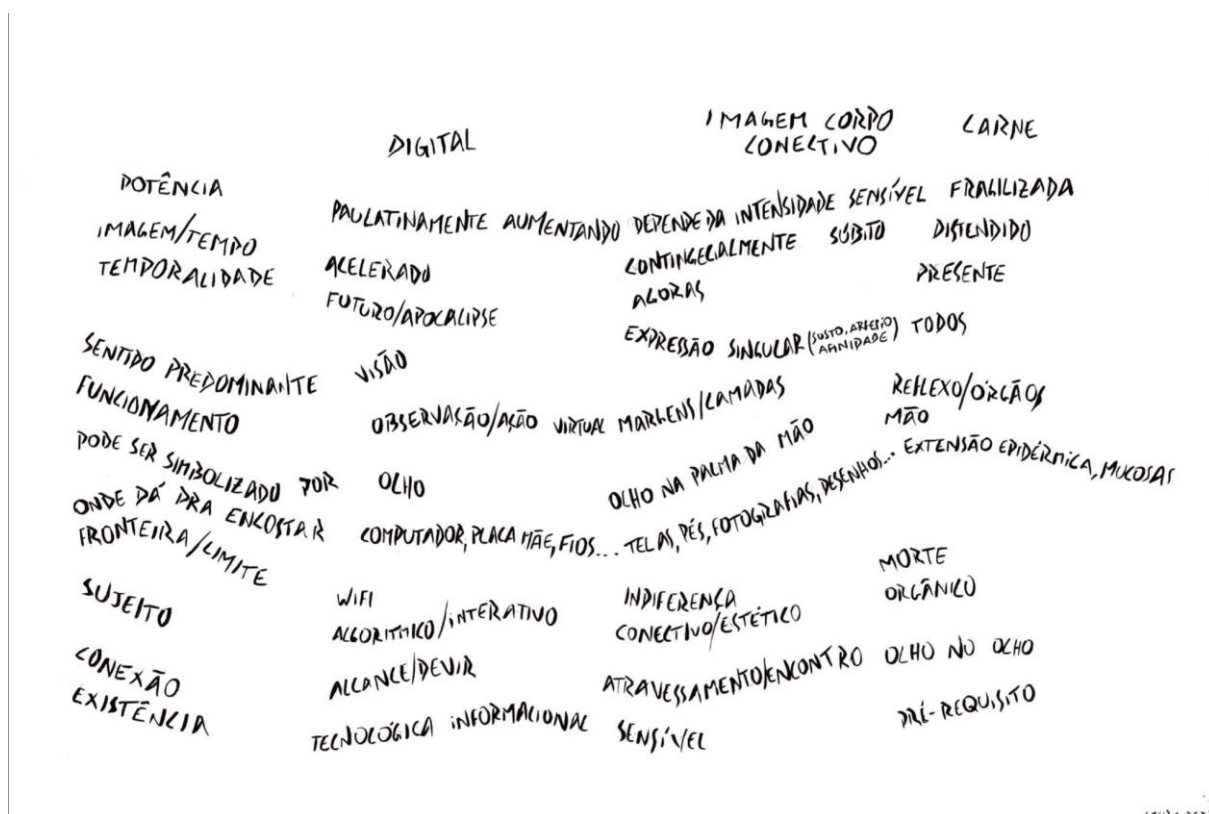 DIGITAL IMAGEM CORPO CONECTIVO CARNE
POTÊNCIA PAULATINAMENTE AUMENTANDO DEPENDE DA INTENSIDADE SENSÍVEL FRAGILIZADA
IMAGEM/TEMPO ACELERADO CONTINGECIALMENTE SÚBITO DISTENDIDO
TEMPORALIDADE FUTURO/APOCALIPSE AGORAS PRESENTE
SENTIDO PREDOMINANTE VISÃO EXPRESSÃO SINGULAR (SUSTO, ARREPIO AFINIDADE) TODOS
FUNCIONAMENTO OBSERVAÇÃO/AÇÃO VIRTUAL MARGENS/CAMADAS REFLEXO/ÓRGÃOS
PODE SER SIMBOLIZADO POR OLHO OLHO NA PALMA DA MÃO MÃO
ONDE DÁ PRA ENCOSTAR COMPUTADOR, PLACA MÃE, FIOS... TELAS, PÉS, FOTOGRAFIAS, DESENHOS... EXTENSÃO EPIDÉRMICA, MUCOSAS
FRONTEIRA/LIMITE WIFI INDIFERENÇA MORTE
SUJEITO ALGORITMICO/INTERATIVO CONECTIVO/ESTÉTICO ORGÂNICO
CONEXÃO ALCANCE/DEVIR ATRAVESSAMENTO/ENCONTRO OLHO NO OLHO
EXISTÊNCIA TECNOLÓGICA INFORMACIONAL SENSÍVEL PRÉ-REQUISITO